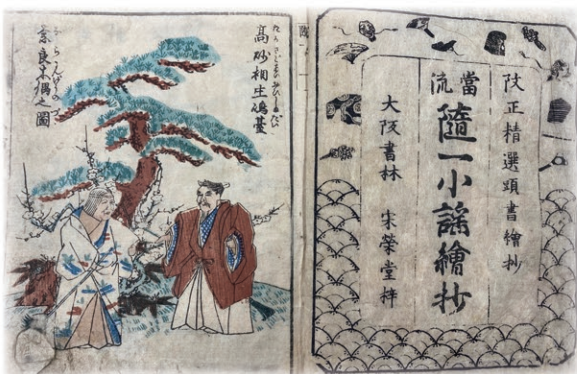 改正精選頭書繪抄
當流
隨一小謠繪抄
大阪書林 宋榮堂梓
高砂相生嶋臺
奈良木偶之圖